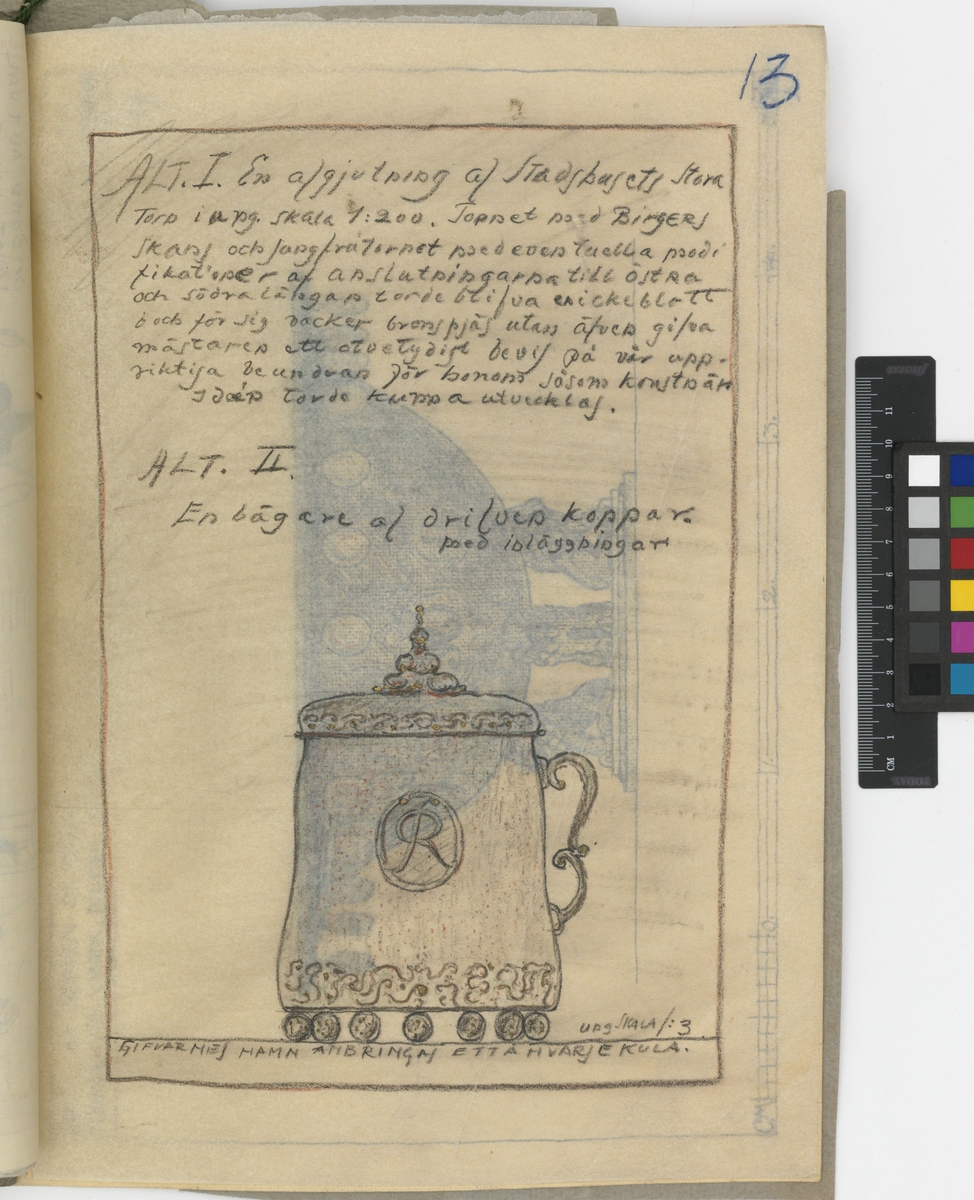 13
ALT. I. En afgjutning af Stadshusets Stora
Torn i ung. skala 1:200. Tornet med Birgers
skans och Jungfrutornet med eventuella modi
fikationer af anslutningarna till östra
och södra längan torde blifva en icke blott
i och för sig vacker bronspjäs utan äfven gifva
mästaren ett otvetydigt bevis på vår upp-
riktiga beundran för honom såsom konstnär
Idén torde kunna utvecklas.
ALT. II.
En bägare af drifven koppar.
med inläggningar
R
ung SKALA 1:3
GIFVARNES NAMN ANBRINGAS ETT Å HVARJE KULA.